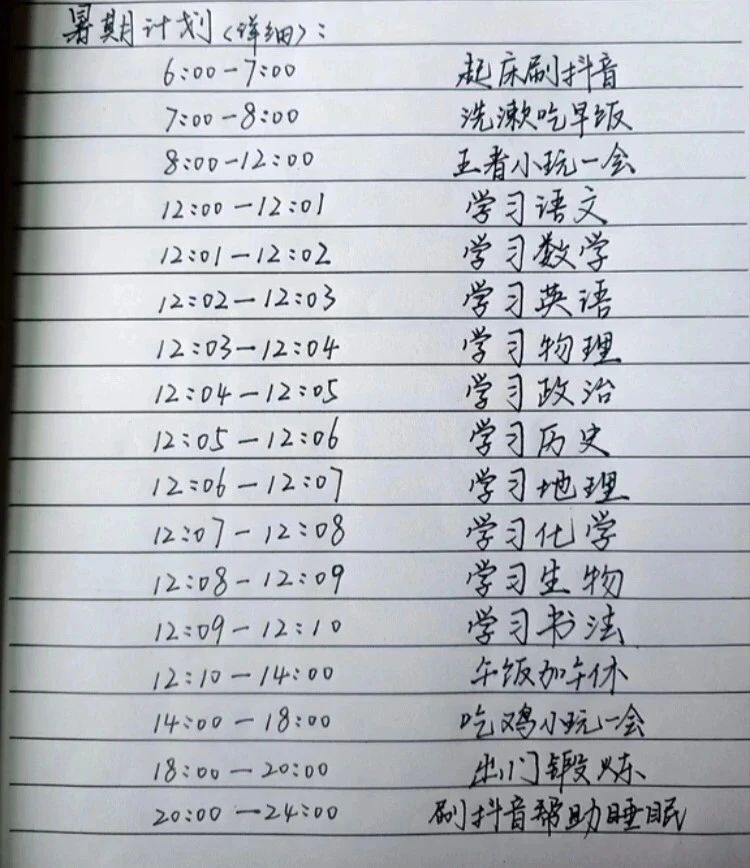 暑期计划(详细):
6:00-7:00 起床刷抖音
7:00-8:00 洗漱吃早饭
8:00-12:00 王者小玩一会
12:00-12:01 学习语文
12:01-12:02 学习数学
12:02-12:03 学习英语
12:03-12:04 学习物理
12:04-12:05 学习政治
12:05-12:06 学习历史
12:06-12:07 学习地理
12:07-12:08 学习化学
12:08-12:09 学习生物
12:09-12:10 学习书法
12:10-14:00 午饭加午休
14:00-18:00 吃鸡小玩一会
18:00-20:00 出门锻炼
20:00-24:00 刷抖音帮助睡眠